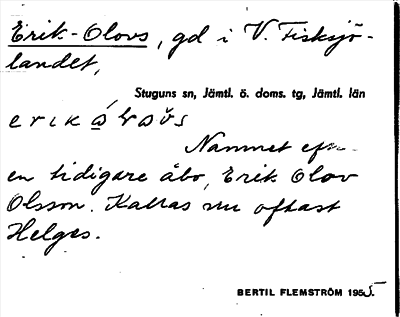 Erik-Olovs, gd i V. Fisksjö-
landet,
Stuguns sn, Jämtl. ö. doms. tg, Jämtl. län
Namnet eft
en tidigare åbo, Erik Olov
Olsson. Kallas nu oftast
Helges.
BERTIL FLEMSTRÖM 1955